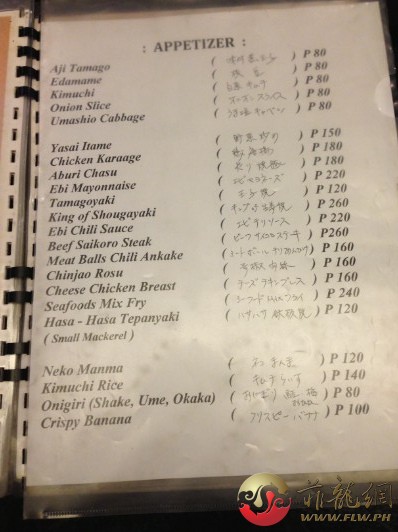 : APPETIZER :
Aji Tamago ( 味付玉子 ) P 80
Edamame ( 枝豆 ) P 80
Kimuchi ( 白菜キムチ ) P 80
Onion Slice ( オニオンスライス ) P 80
Umashio Cabbage ( キャベツ ) P 80
Yasai Itame ( 野菜炒め ) P 150
Chicken Karaage ( ) P 180
Aburi Chasu ( 炙り焼豚 ) P 180
Ebi Mayonnaise ( エビマヨネーズ ) P 220
Tamagoyaki ( 玉子焼 ) P 120
King of Shougayaki ( ) P 260
Ebi Chili Sauce ( エビチリソース ) P 220
Beef Saikoro Steak ( ビーフサイコロステーキ ) P260
Meat Balls Chili Ankake ( ミートボールチリあんかけ ) P 160
Chinjao Rosu ( ) P 160
Cheese Chicken Breast ( チーズチキンブレス ) P 160
Seafoods Mix Fry ( シーフードMixフライ ) P 240
Hasa - Hasa Tepanyaki ( ハサハサ鉄板焼 ) P 120
( Small Mackerel )
Neko Manma ( ねこまんま ) P 120
Kimuchi Rice ( キムチらいす ) P 140
Onigiri (Shake, Ume, Okaka) ( おにぎり 鮭 梅 おかか ) P 80
Crispy Banana ( クリスピーバナナ ) P 100
菲龍網
WWW.FLW.PH